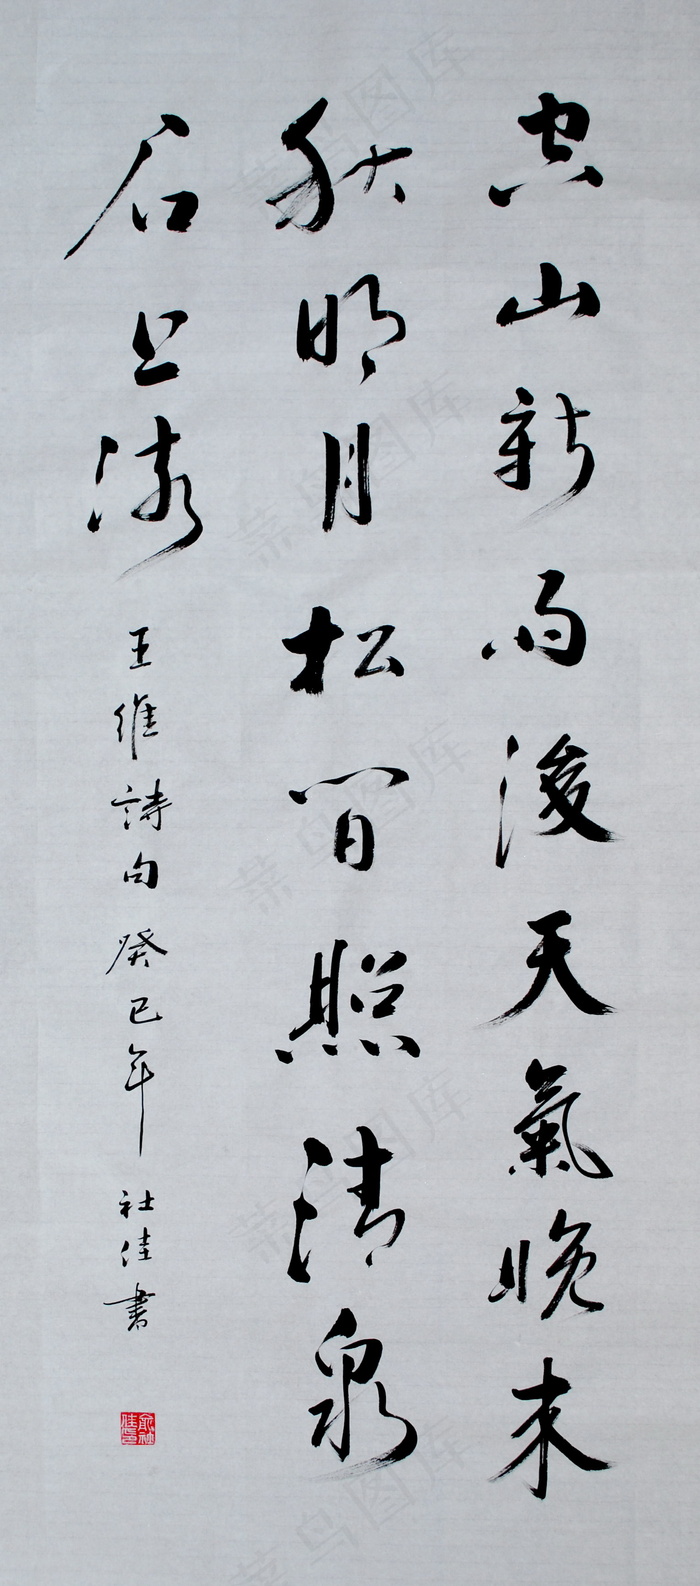 空山新雨後天氣晚来
秋明月松間照清泉
石上流
王維詩句癸巳年社佳書
俞社佳印
菜鸟图库
菜鸟图库
菜鸟图库
菜鸟图库
菜鸟图库